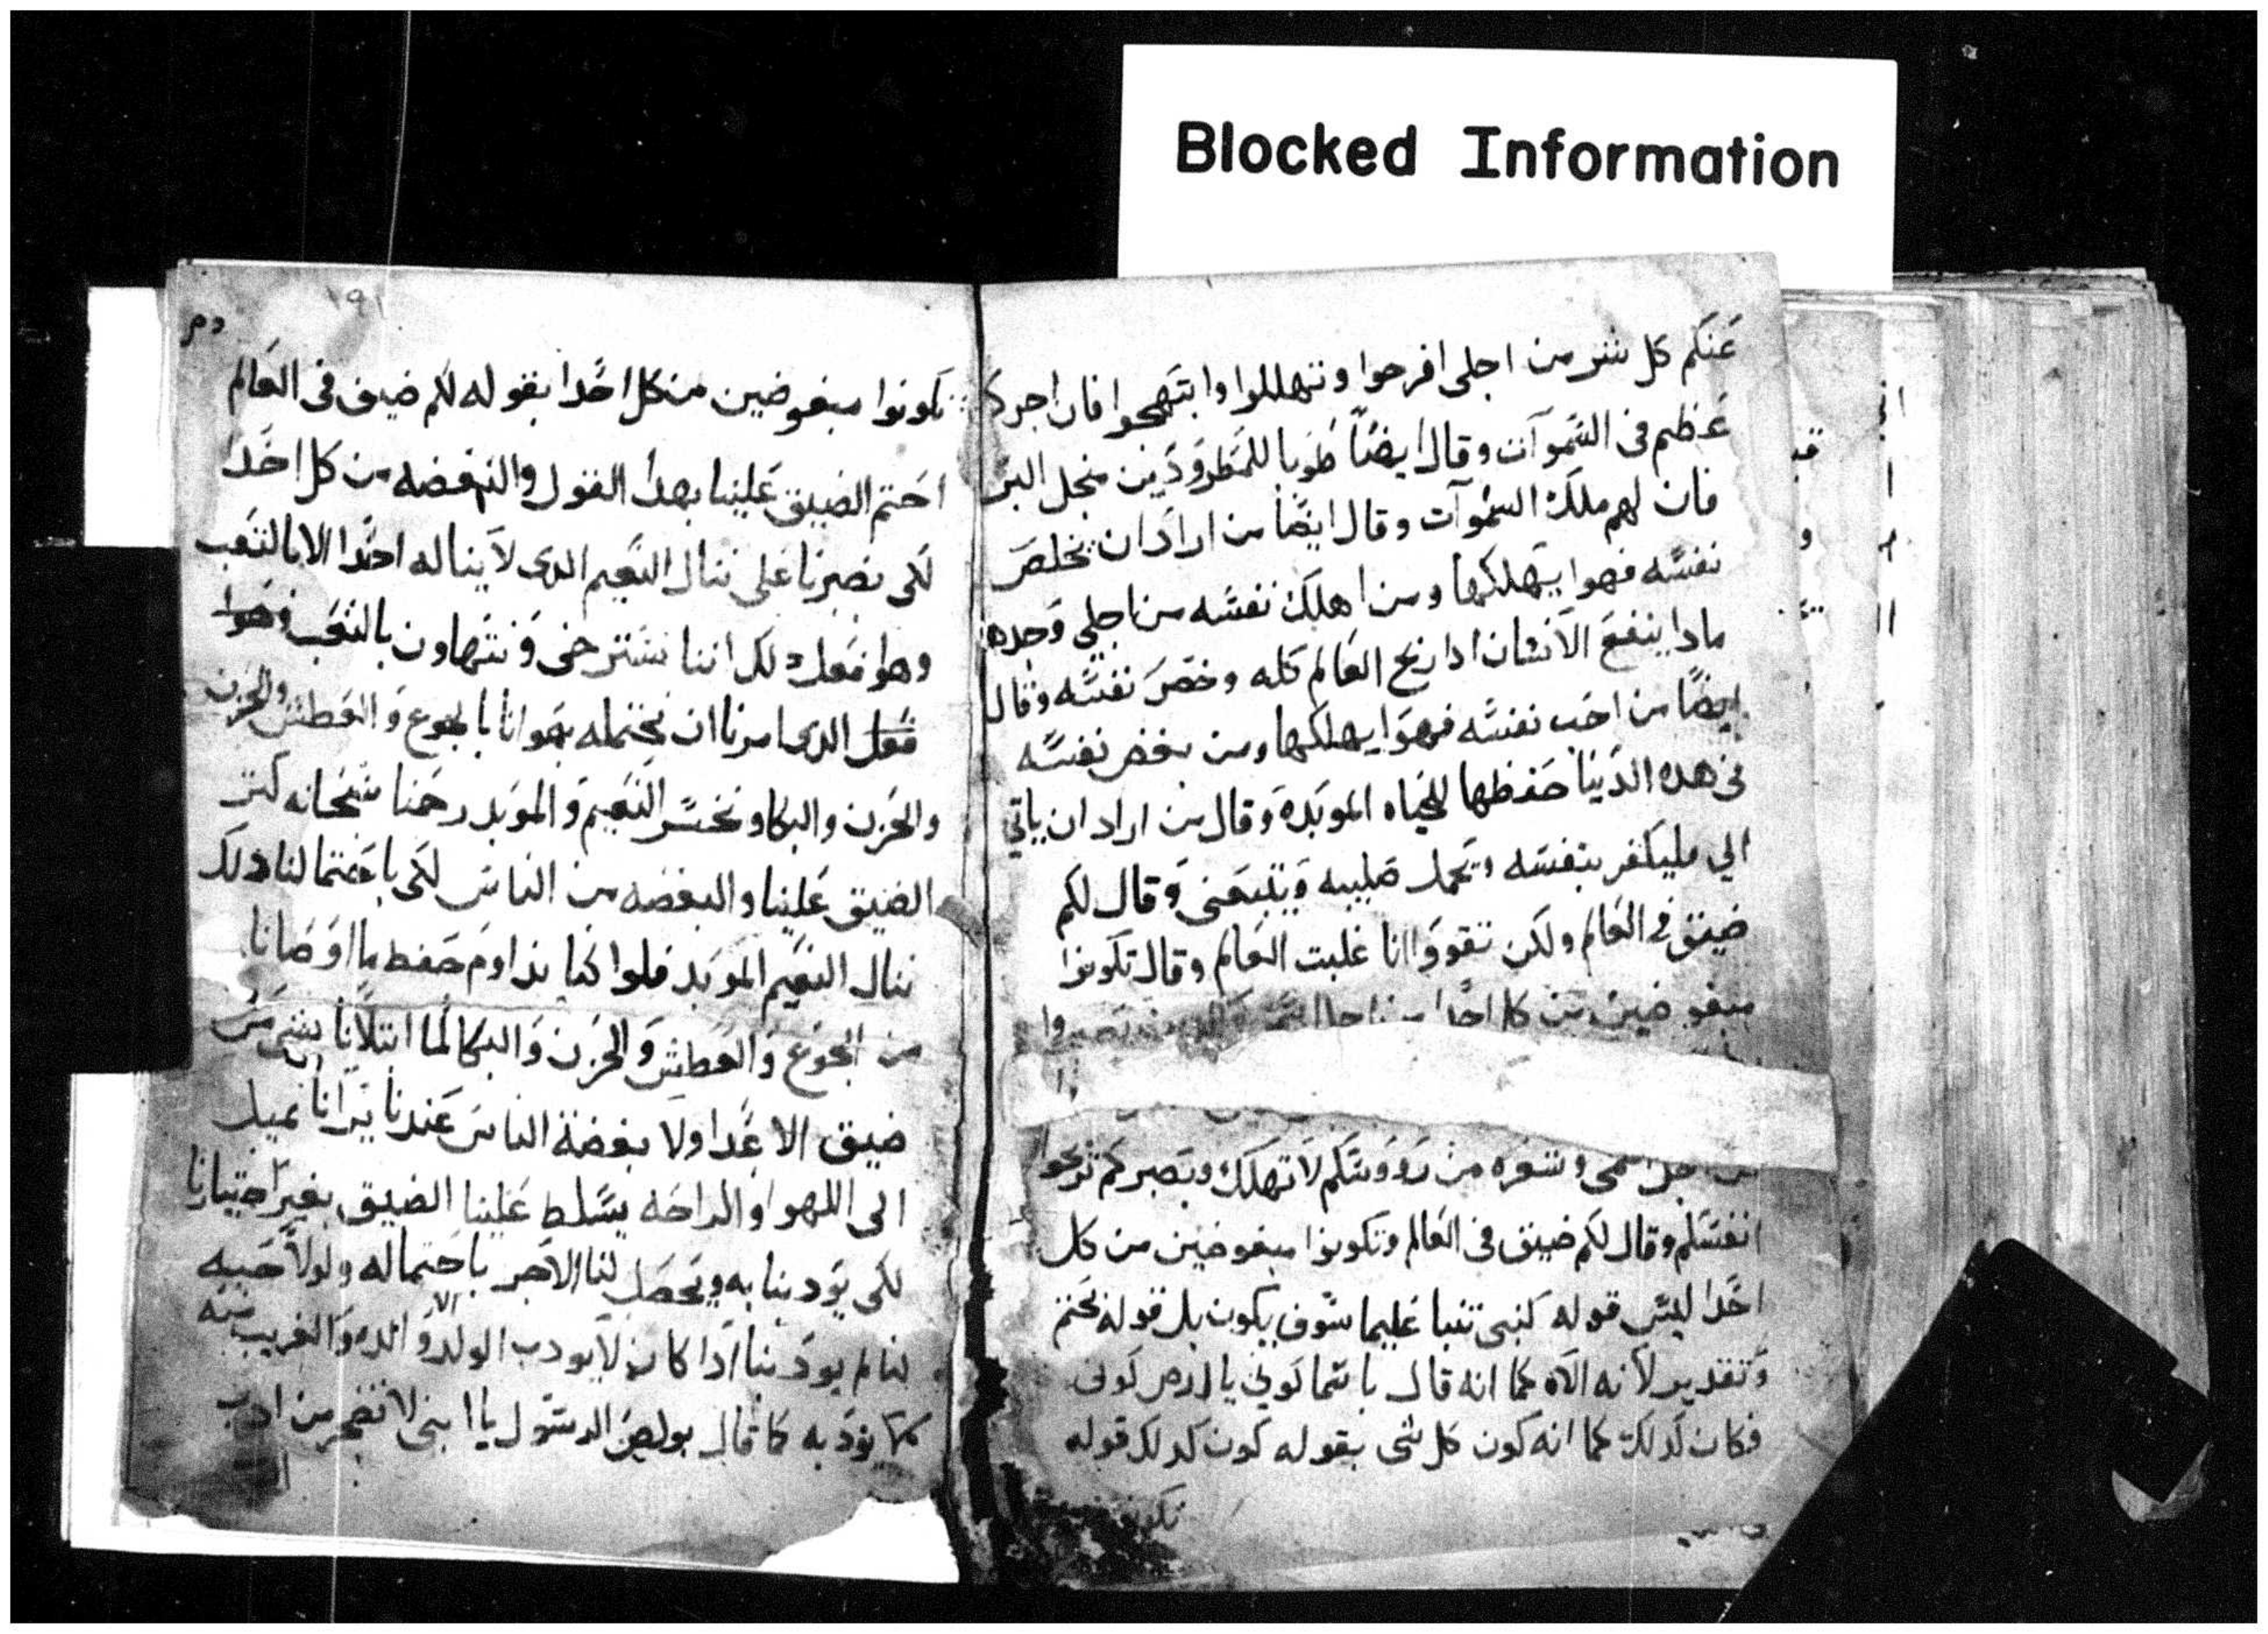 Blocked Information
عنكم كل شر من اجلى افرحوا وتهللوا وابتهجوا فان اجركم
عظيم فى السموآت وقال ايضًا طوبا للمطرودين منجل البر
فان لهم ملكة السموآت وقال ايضًا من اراد ان يخلص
نفسه فهوا يهلكها ومن اهلك نفسه من اجلى وجدها
مادا ينفع الانسان ادا ربح العالم كله وخصر نفسه وقال
ايضًا من احب نفسه فهوا يهلكها ومن بغض نفسه
فى هده الدنيا حفظها للحياه الموبده وقال من اراد ان ياتي
الي فليكفر بنفسه ويحمل صليبه ويتبعنى وقال لكم
ضيق في العالم ولكن تقووا انا غلبت العالم وقال تكونوا
مبغوضين من كل احدًا من اجل
من اجل اسمى وشعره من رووسكم لاتهلك وبصبركم تربحوا
انفسكم وقال لكم ضيق فى العالم وتكونوا مبغوضين من كل
احدًا ليس قوله كنبى تنبا عليما سوف يكون بل قوله بحتم
وتقدير لانه الاه كما انه قال ياسما كوني يا ارض كونى
فكان كدلك كما انه كون كل شى بقوله كون كدلك قوله
تكونوا
١٩١
تكونوا مبغوضين من كل احدًا بقوله لكم ضيق فى العالم
احتم الضيق علينا بهدا القول والبغضه من كل احدًا
لكى يصبرنا على ننال النعيم الدى لاينا له احدًا الا بالتعب
وهوا فعل دلك اننا نسترخى ونتهاون بالتعب
الدى امرنا ان نحتمله بهوانا بالجوع والعطش والحزن
والحزن والبكا ونخسر النعيم والموبد رحمنا سبحانه كتر
الضيق علينا والبغضه من الناس لكى باحتمالنا دلك
ننال النعيم الموبد فلوا كنا نداوم حفظ ما اوصانا
من الجوع والعطش والحزن والبكا لما ابتلانا بشى من
ضيق الاعدا ولا بغضة الناس عندنا يرانا نميل
الى اللهوا والراحه يسلط علينا الضيق بغير اختيارنا
لكى يودبنا به ويحصل لنا الاجر باحتماله ولولا حبه
لنا لم يودبنا ادا كان لايودب الولد الا والده والغريب
كما يودبه كما قال بولص الرسول يا ابنى لاتضجر من ادب
الرب